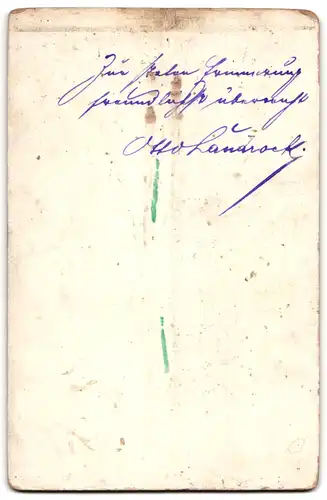 Zur steten Erinnerung
freundlichst überreicht
Otto Landrock.